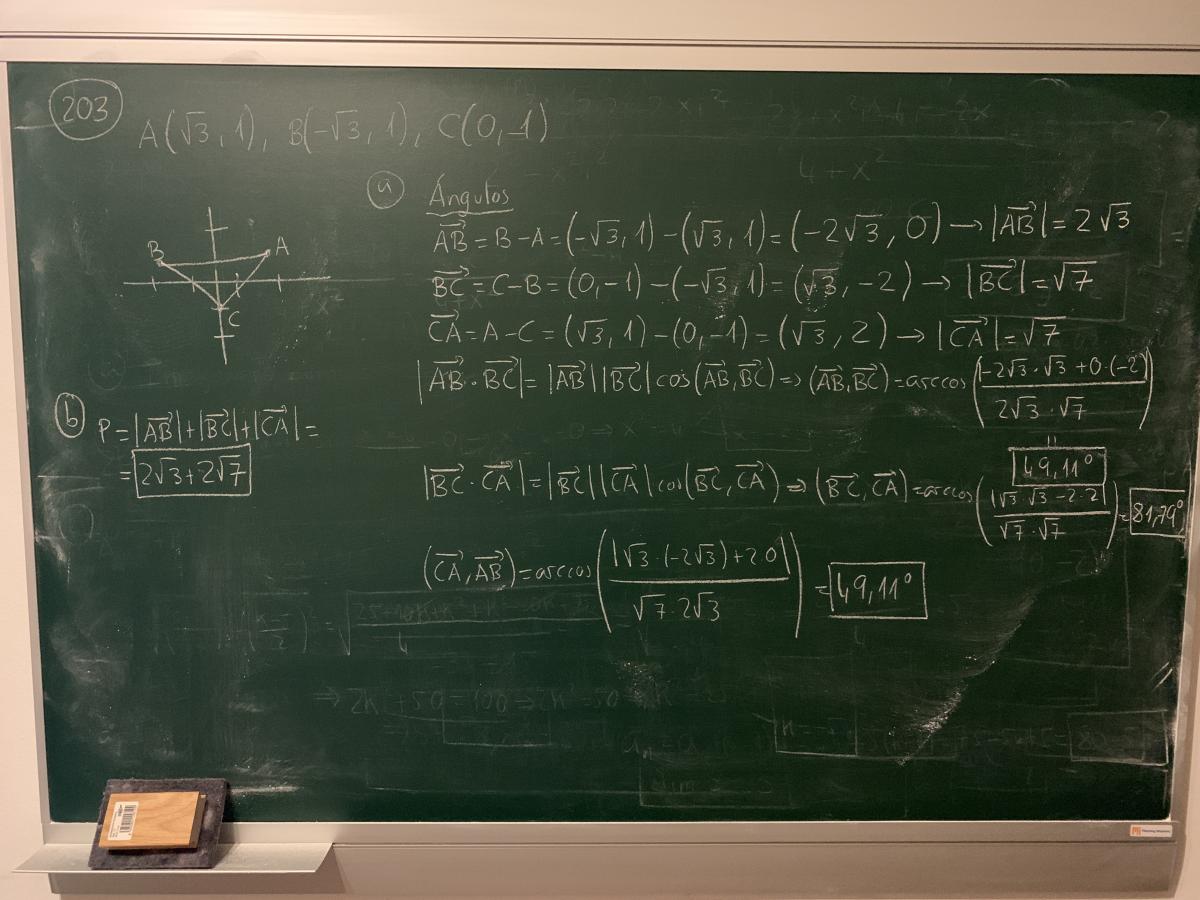 203
A(√3, 1), B(-√3, 1), C(0, -1)
a Ángulos
AB→ = B-A = (-√3, 1) - (√3, 1) = (-2√3, 0) → |AB→| = 2√3
BC→ = C-B = (0, -1) - (-√3, 1) = (√3, -2) → |BC→| = √7
CA→ = A-C = (√3, 1) - (0, -1) = (√3, 2) → |CA→| = √7
|AB→ · BC→| = |AB→| |BC→| cos(AB→, BC→) => (AB→, BC→) = arccos (|-2√3 · √3 + 0·(-2)| / 2√3 · √7)
=
49,11°
|BC→ · CA→| = |BC→| |CA→| cos(BC→, CA→) => (BC→, CA→) = arccos (|√3 · √3 - 2·2| / √7 · √7) = 81,79°
(CA→, AB→) = arccos (|√3 · (-2√3) + 2·0| / √7 · 2√3) = 49,11°
B A
C
b P = |AB→| + |BC→| + |CA→| =
= 2√3 + 2√7